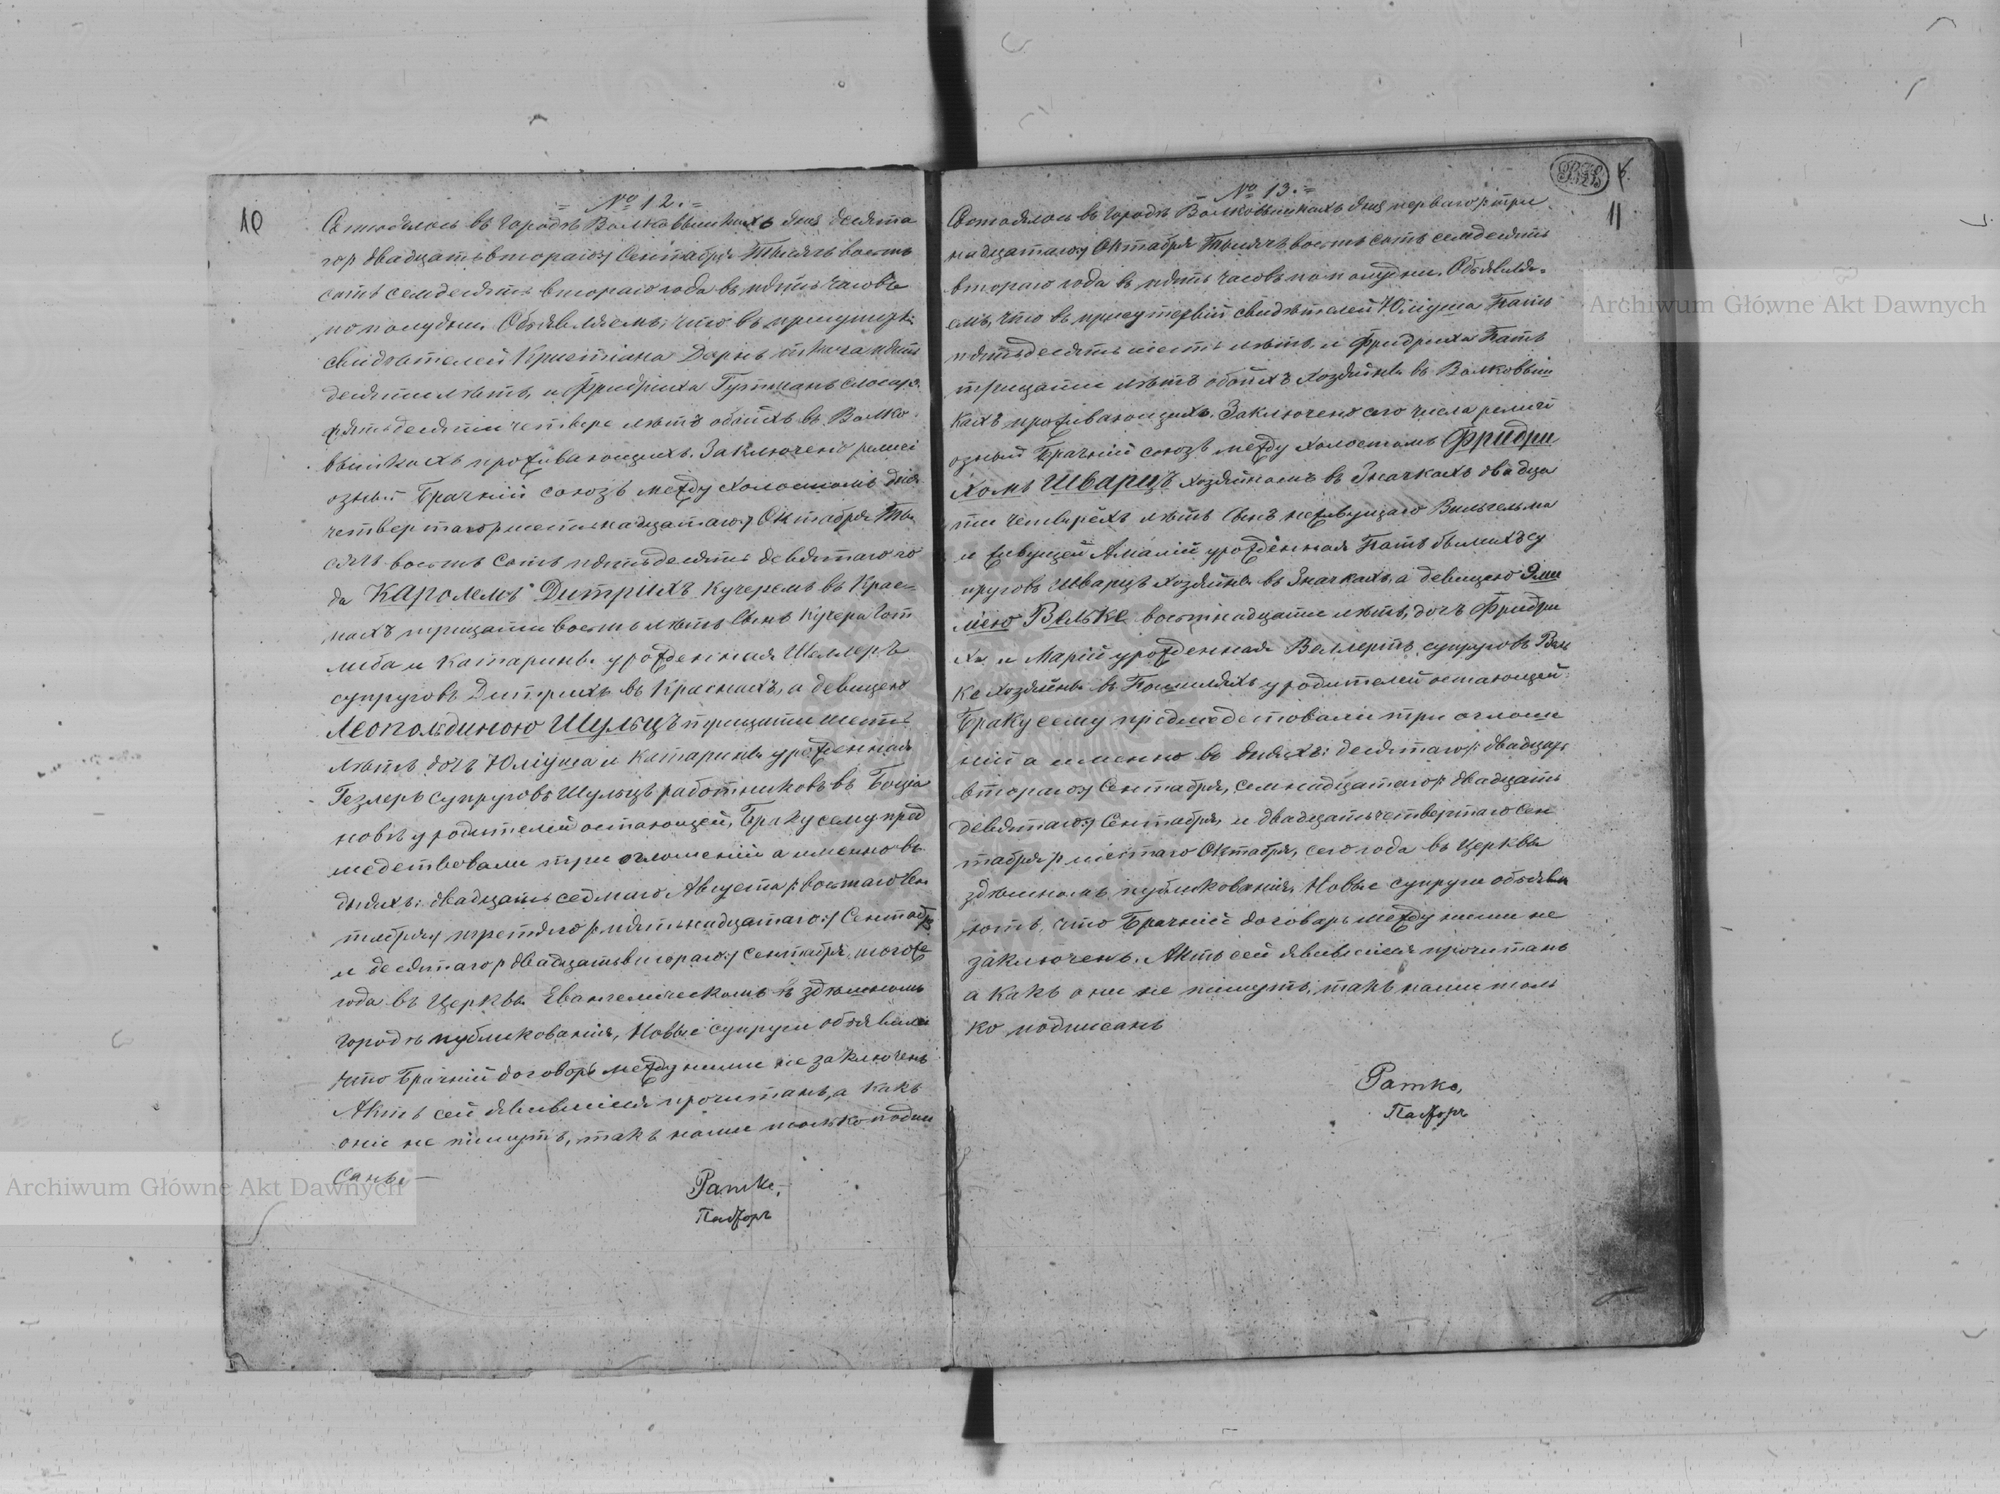 10
№ 12.
Состоялось въ городѣ Волковышкахъ дня десята
го/ двадцать втораго/ Сентября Тысяча восемь
сотъ семдесятъ втораго года въ пять часовъ
по полудни. Объявляемъ, что въ присутств.
свидѣтелей Христіана Дорнъ ткача пять
десяти лѣтъ, и Фридриха Гутманъ слесаря
пятьдесяти четыре лѣтъ обоихъ въ Волко
вышкахъ проживающихъ. Заключенъ религі
озный Брачній союзъ между холостомъ дня
четвертаго/ шестьнадцатаго/ Октября Ты
сячъ восемь сотъ пятьдесятъ девятаго го
да Каролемъ Дитрихъ кучеремъ въ Крас
нахъ тридцати восемь лѣтъ сынъ кучера Гот
либа и Катарины урожденная Шеллеръ
супруговъ Дитрихъ въ Краснахъ, а девицею
Леопольдиною Шульцъ тридцати шесть
лѣтъ дочь Юліуша и Катарины урожденная
Гезлеръ супруговъ Шульцъ работниковъ въ
новѣ у родителей остающей, Браку сему пред
шедствовали три оглошеній а именно въ
дняхъ: двадцать седмаго Августа/ восмаго Сен
тября/ третяго/ пятьнадцатаго/ Сентября
и десятаго/ двадцать втораго/ Сентября, тогоже
года въ Церквы Евангелическомъ въ здѣшномъ
городѣ публикованія, Новые супруги объявили
что Брачній договоръ между ними не заключенъ
Актъ сей явившіися прочитанъ, а какъ
они не пишутъ, такъ нами только подпи
санъ. —
Ратке,
Пасторъ
11
№ 13.
Состоялось въ городѣ Волковышкахъ дня перваго/ три
надцатаго/ Октября Тысячъ восемь сотъ семдесятъ
втораго года въ пять часовъ по полудни. Объявля
емъ, что въ присутствіи свидѣтелей Юліуша Патъ
пятьдесятъ шесть лѣтъ, и Фридриха Патъ
тридцати лѣтъ обоихъ хозяйнъ въ Волковыш
кахъ проживающихъ. Заключенъ сего числа религі
озный Брачній союзъ между холостомъ Фридри
хомъ Шварцъ хозяйномъ въ Значкахъ двадца
ти четырёхъ лѣтъ сынъ неживущаго Вильгельма
и живущей Амаліи урожденная Патъ бывшихъ су
пруговъ Шварцъ хозяйнъ въ Значкахъ, а девицею Эми
ліею Вельке восмнадцати лѣтъ, дочь Фридри
ха и Маріи урожденная Веллертъ супруговъ Вель
ке хозяйнъ въ у родителей остающей.
Браку сему предшедствовали три оглоше
ній а именно въ дняхъ: десятаго/ двадцать
втораго/ Сентября, семнадцатаго/ двадцать
девятаго/ Сентября, и двадцать четвертаго Сен
тября/ шестаго Октября, сего года въ Церквы
здѣшномъ публикованія, Новые супруги объявля
ютъ, что Брачній договоръ между ними не
заключенъ. Актъ сей явившіися прочитанъ
а какъ они не пишутъ, такъ нами толь
ко подписанъ
Ратке,
Пасторъ
Archiwum Główne Akt Dawnych
Archiwum Główne Akt Dawnych